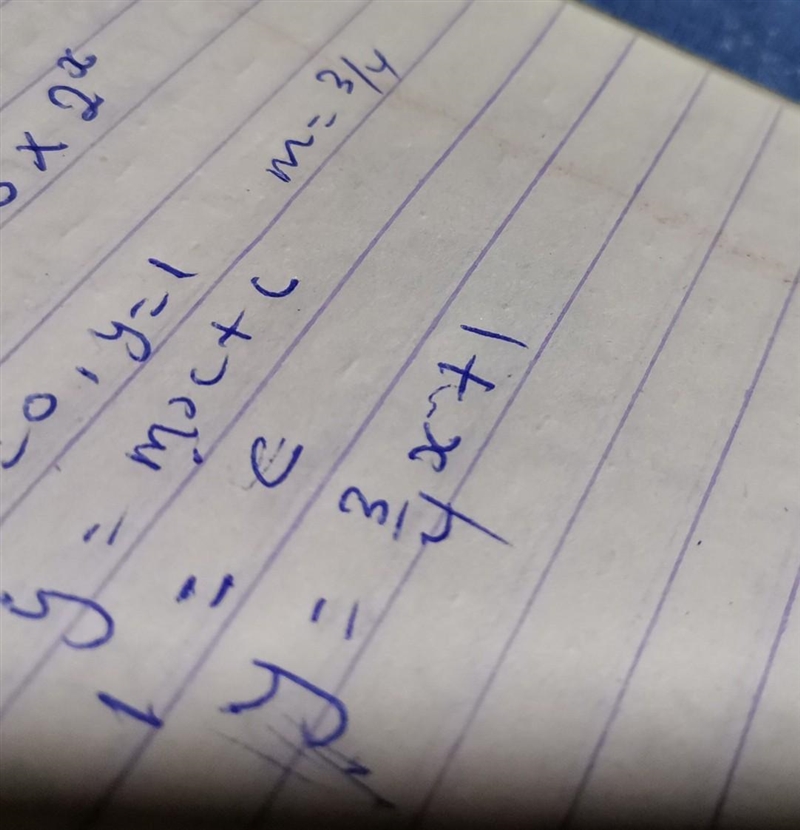 x 2^x
0, y=1 m=3/4
y = mx + c
1 = c
y = 3/4 x + 1